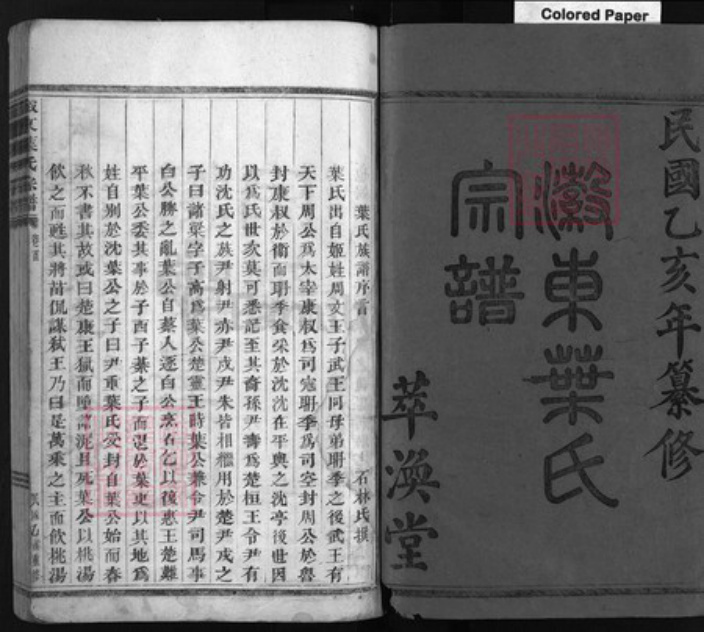 Colored Paper
民國乙亥年纂修
澂東葉氏
宗譜
萃渙堂
葉氏族譜序言
石林氏撰
葉氏出自姬姓周文王子武王同母弟聃季之後武王有
天下周公爲太宰康叔爲司寇聃季爲司空封周公於魯
封康叔於衛而聃季食采於沈沈在平輿之沈亭後世因
以爲氏世次莫可悉記至其裔孫尹壽爲楚桓王令尹有
功沈氏之族尹射尹赤尹戍尹朱皆相繼用於楚尹戍之
子曰諸梁字子高爲葉公楚靈王時葉公兼令尹司馬事
白公勝之亂葉公自蔡入逐白公烹石乞以復惠王楚難
平葉公委其事於子西子綦之子而老於葉更以其地爲
姓自別於沈葉公之子曰尹重葉氏受封自葉公始而春
秋不書其故或曰楚康王獄而 死葉公以桃湯
飲之而甦其將苗侃謀弒王乃曰是萬乘之主而飲桃湯
葉氏宗譜
卷首